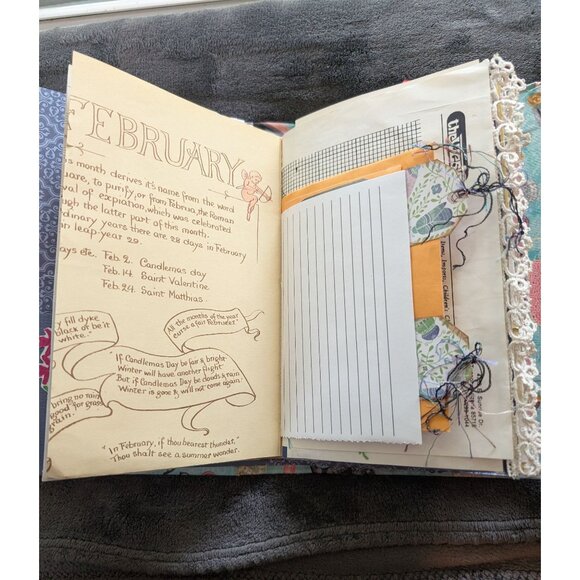 FEBRUARY
this month derives it's name from the word
to purify, or from Februa, the Roman
of expiation, which was celebrated
the latter part of this month.
years there are 28 days in February
leap year 29.
etc. Feb. 2. Candlemas day
Feb. 14 Saint Valentine
Feb. 24. Saint Matthias
fill dyke
black or be it
white."
All the months of the year
curse a fair Februeer."
"If Candlemas Day be fair & bright-
Winter will have another flight
But if Candlemas Day be clouds & rain
Winter is gone & will not come again."
bring no rain
good for grass
grain.
"In February, if thou hearest thunder,
Thou shalt see a summer wonder.
the
Children's
Dr.